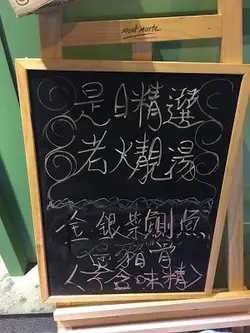 Mont Marte
是日精選
老火靚湯
金銀菜鰂魚
煲豬骨
〈不含味精〉